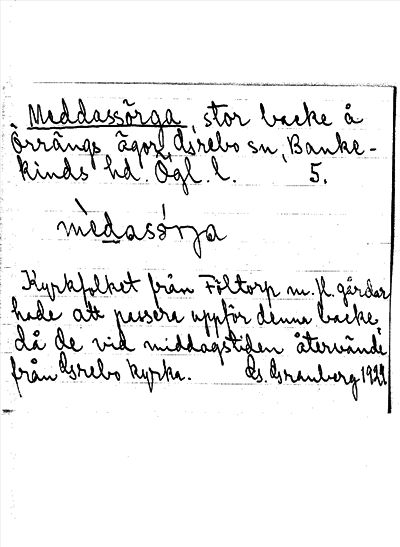 Meddassörga, stor backe å
Örrängs ägor, Grebo sn, Banke-
kinds hd. Ögl. l. 5.
mèdassórga
Kyrkfolket från Föltorp m. fl. gårdar
hade att passera uppför denna backe,
då de vid middagstiden återvände
från Grebo kyrka. G. Granberg 1922